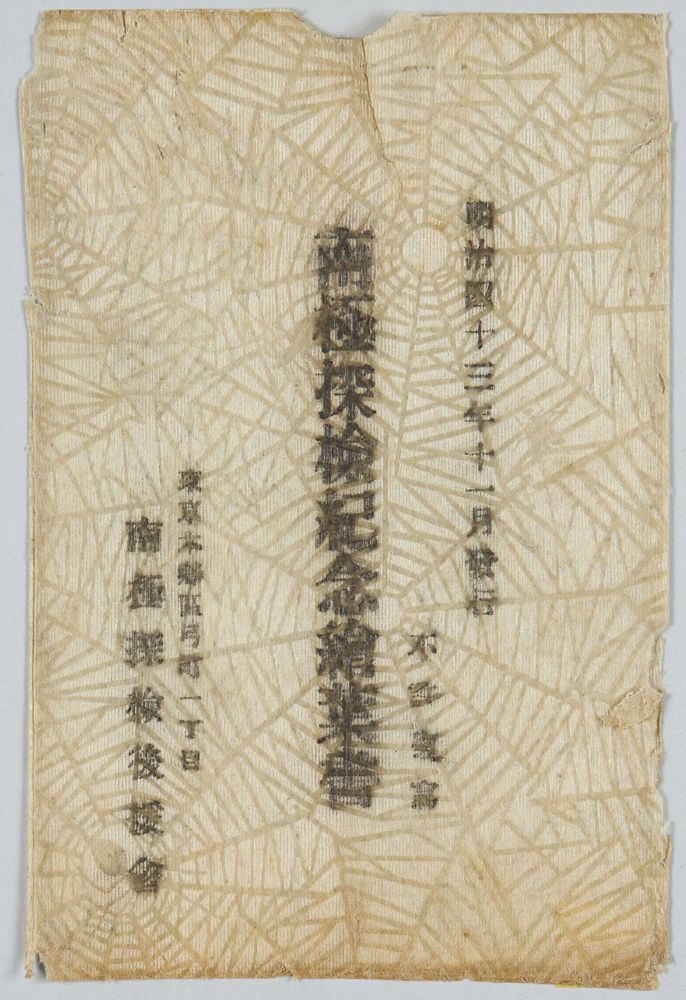 明治四十三年十一月發行
不許複寫
南極探檢紀念繪葉書
東京本鄕區弓町一丁目
南極探檢後援會